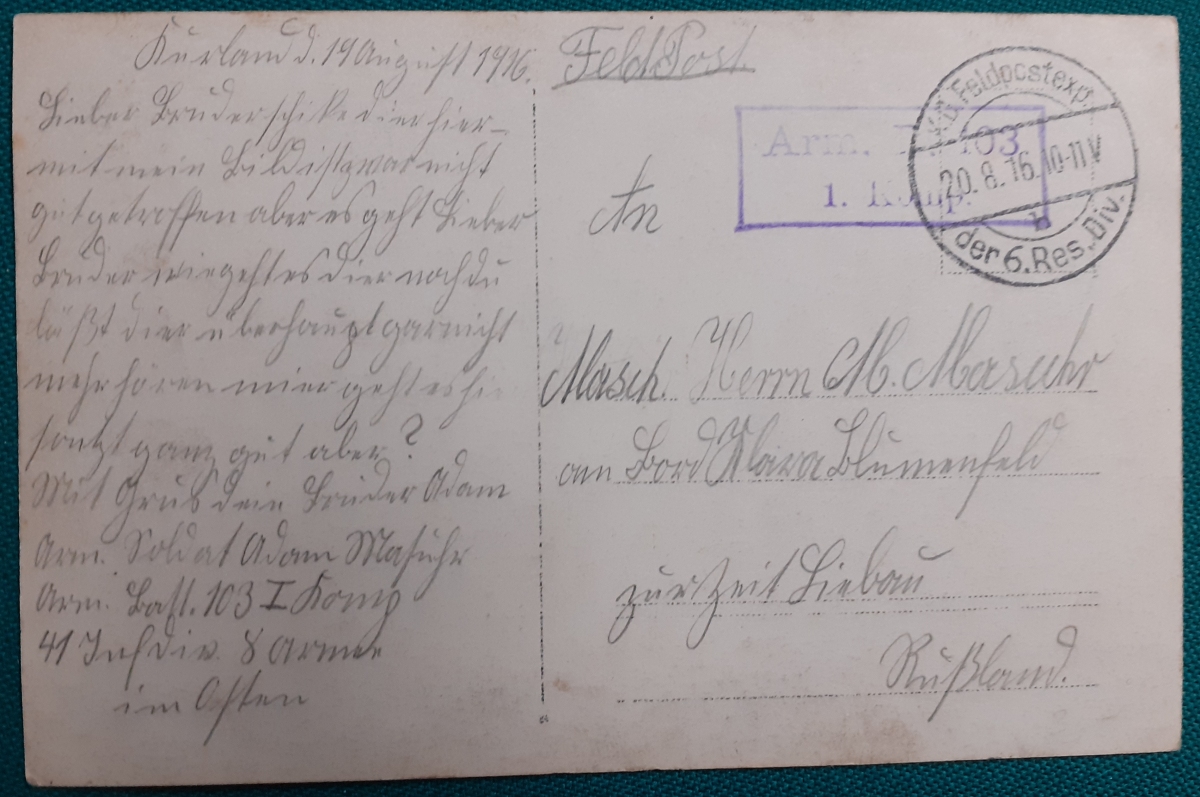 Kurland d. 19 August 1916.
Lieber Bruder schike dier hier-
mit mein Bild ist zwar nicht
gut getroffen aber es geht Lieber
Bruder wie geht es dier noch du
läßt dier überhaupt garnicht
mehr hören mier geht es hie
sonzt ganz gut aber?
Mit Grus dein Bruder Adam
Arm. Soldat Adam Masuhr
Arm. Batt. 103 I Komp
41 Inf div. 8 Armee
im Osten
Feld Post.
Arm. 103
1. Komp.
K.D. Feldpostexp.
20. 8. 16. 10-11 V
b
der 6. Res. Div.
An
Masch. Herrn M. Masuhr
am Bord Klara Blumenfeld
zur Zeit Liebau
Rußland.